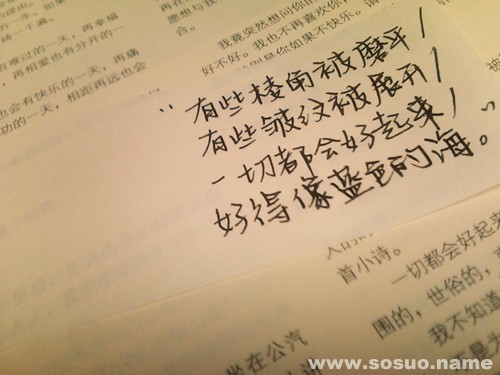 难过的一天，再幸福
，再相爱也有分开的
也会有快乐的一天，再痛
功的一天，相距再远也会
合。
我竟突然想问你
好不好。我也不再喜欢你，
是你如果不快乐。
“有些棱角被磨平/
有些皱纹被展开/
一切都会好起来/
好得像蓝色的海。”
首小诗。
一切都会好起来
围的，世俗的，
我不知道
坐在公汽
www.sosuo.name